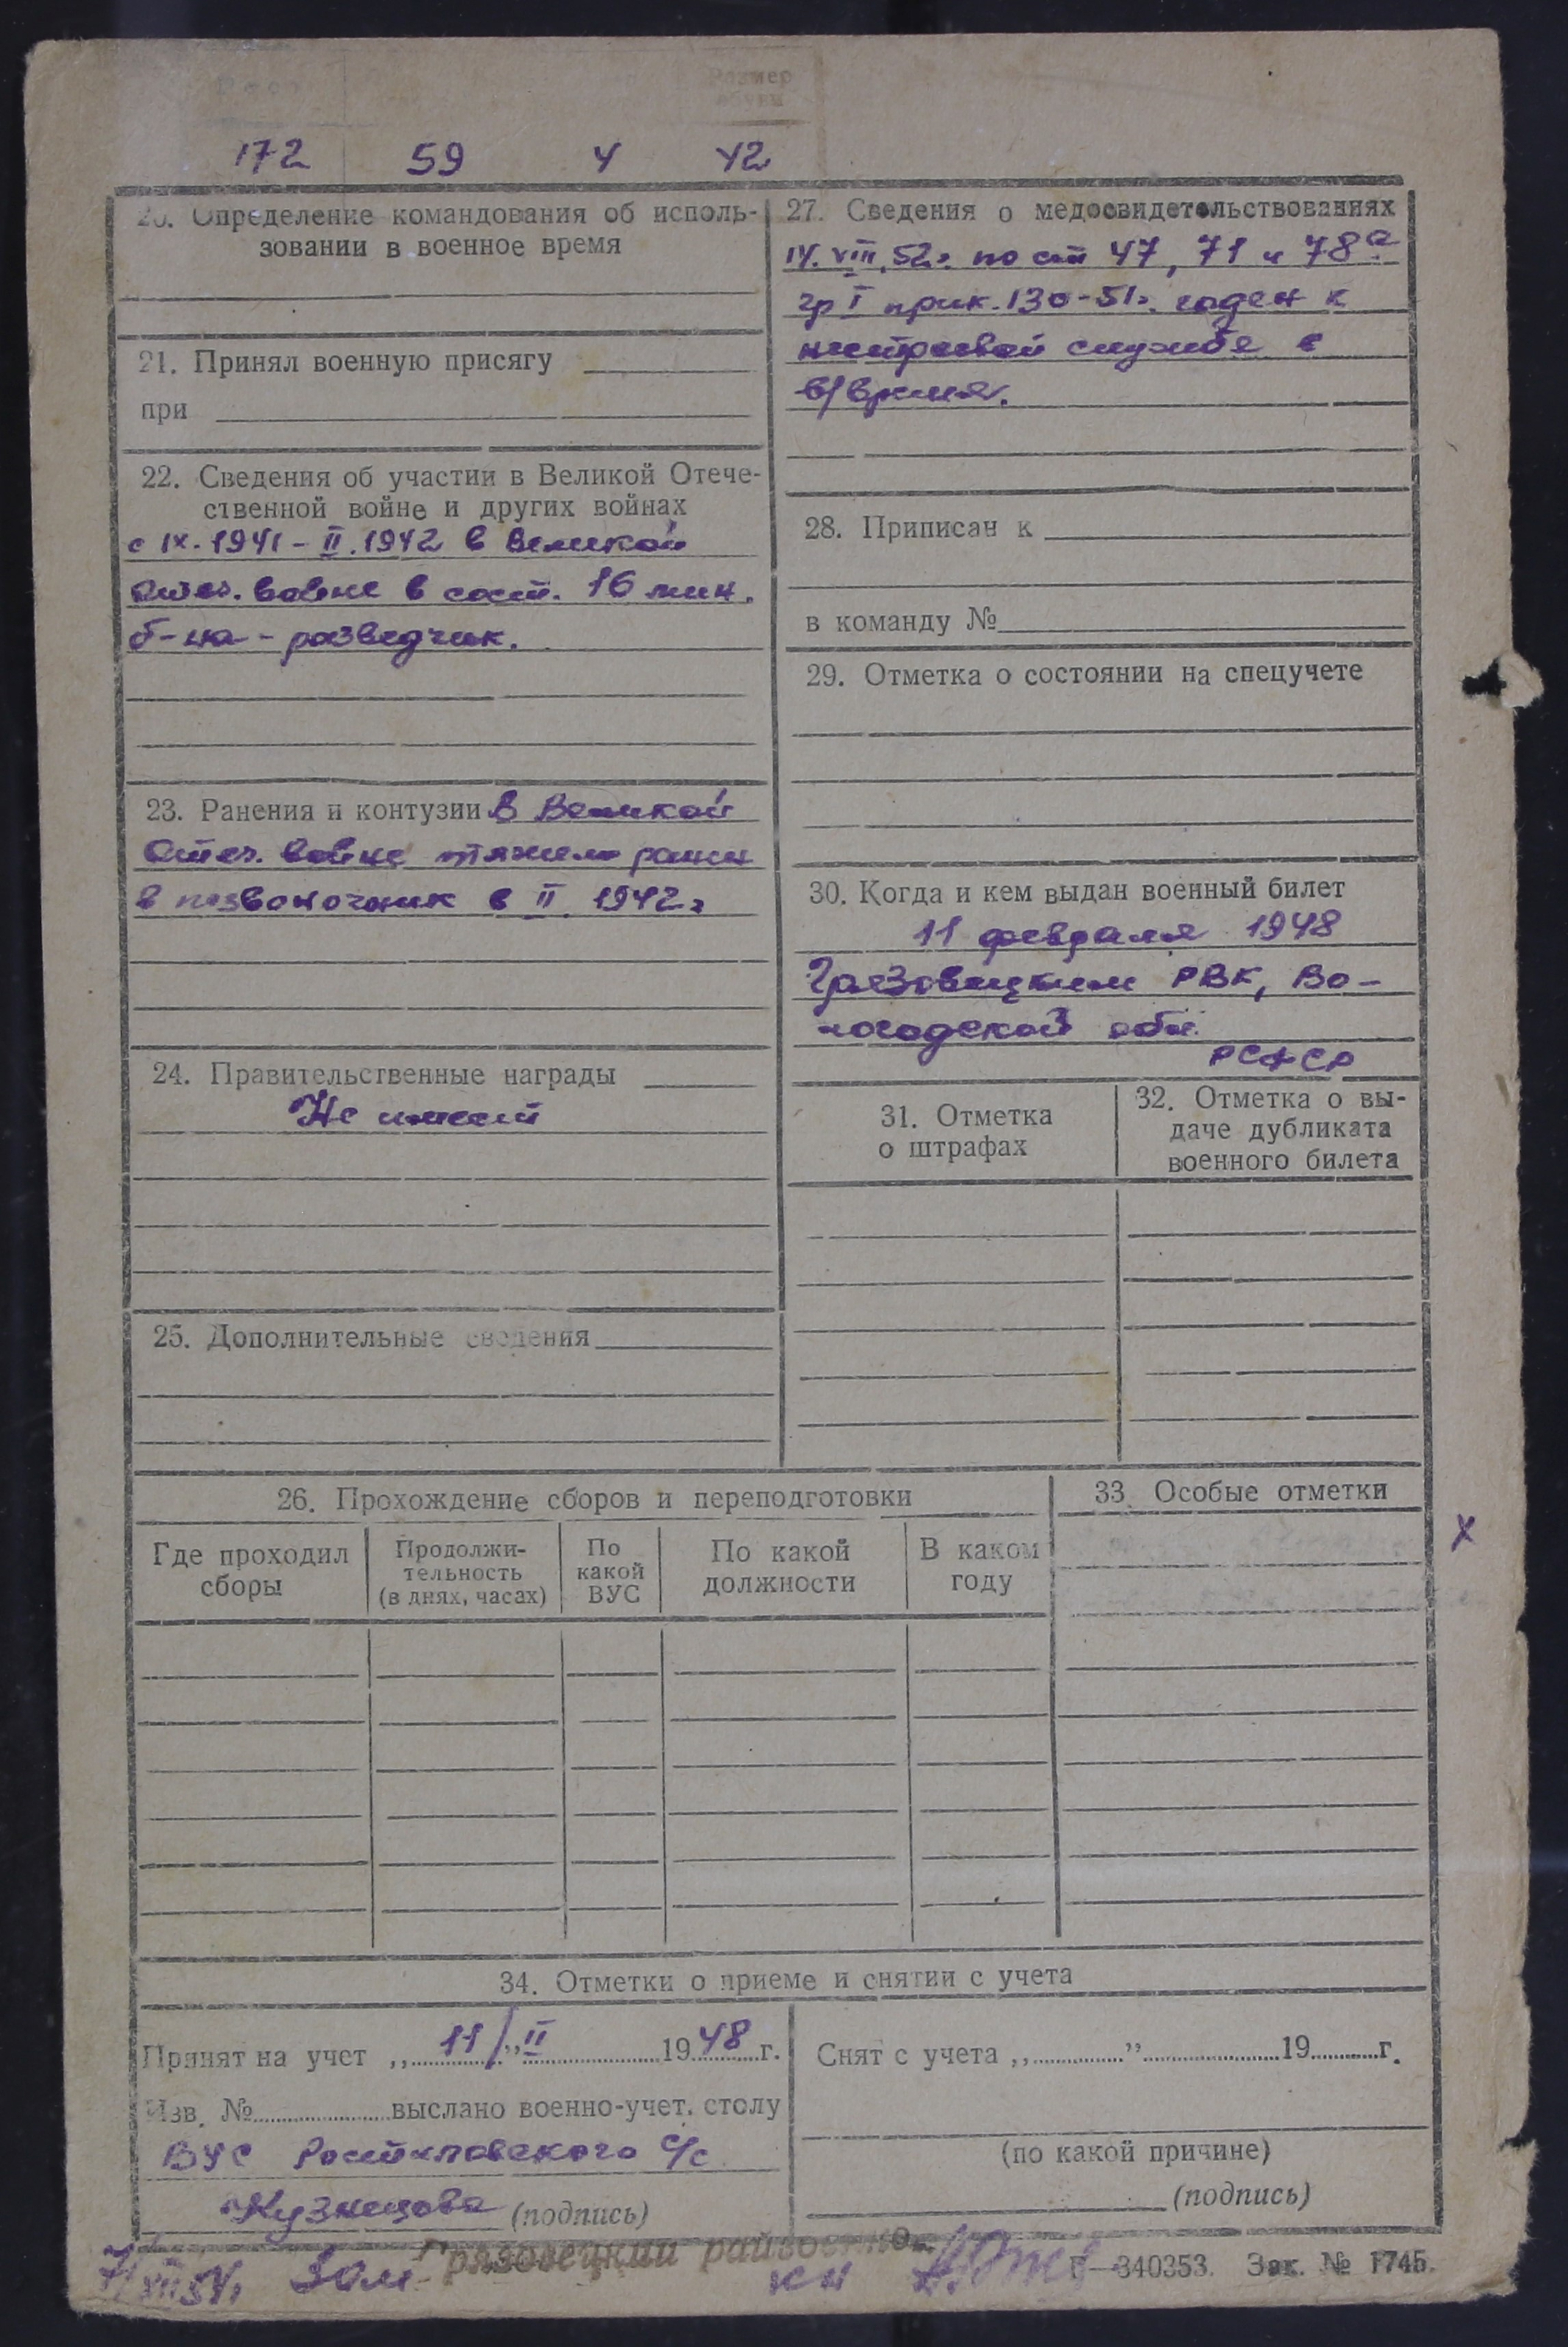 Рост
Размер
обуви
172 59 4 42
20. Определение командования об исполь-
зовании в военное время
21. Принял военную присягу
при
22. Сведения об участии в Великой Отече-
ственной войне и других войнах
с IX.1941 - II.1942 в Великой
Отеч. войне в сост. 16 мин.
б-на - разведчик.
23. Ранения и контузии в Великой
Отеч. войне тяжело ранен
в позвоночник в II 1942г
24. Правительственные награды
Не имеет
25. Дополнительные сведения
27. Сведения о медосвидетельствованиях
14.VIII.52г. по ст 47, 71 и 78а
гр I прик. 130-51г. годен к
нестроевой службе в
в/время.
28. Приписан к
в команду №
29. Отметка о состоянии на спецучете
30. Когда и кем выдан военный билет
11 февраля 1948
Грязовецким РВК, Во-
логодской обл.
РСФСР
31. Отметка
о штрафах
32. Отметка о вы-
даче дубликата
военного билета
26. Прохождение сборов и переподготовки
Где проходил
сборы
Продолжи-
тельность
(в днях, часах)
По
какой
ВУС
По какой
должности
В каком
году
33. Особые отметки
х
34. Отметки о приеме и снятии с учета
Принят на учет „ 11/" II 1948 г.
Изв. № выслано военно-учет. столу
ВУС Ростиловского с/с
Кузнецова (подпись)
Снят с учета „ " 19 г.
(по какой причине)
(подпись)
Грязовецкий райвоенком
Г—340353. Зак. № 1745.